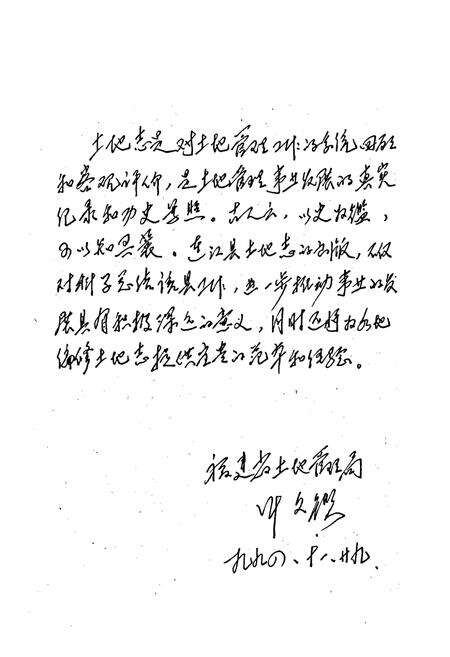 土地志是对土地管理工作的系统回顾
和客观评价，是土地管理事业发展的真实
纪录和历史写照。古人云，以史为鉴，
可以知兴衰。连江县土地志的出版，不仅
对科学总结该县工作，进一步推动事业的发
展具有积极深远的意义，同时还将为各地
编修土地志提供宝贵的范本和经验。
福建省土地管理局
叶文鑑
九九四、十八、廿九、